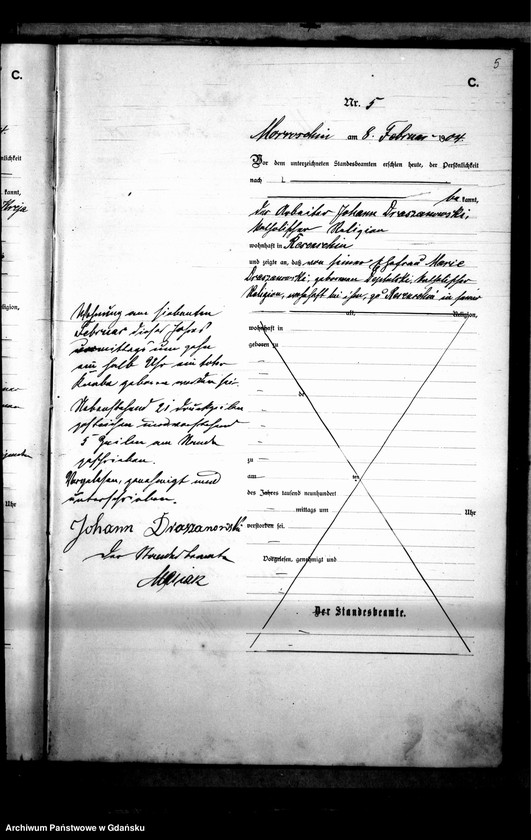 C.
5
C.
Nr. 5
am 8. Februar 1904.
Vor dem unterzeichneten Standesbeamten erschien heute, der Persönlichkeit
nach
be kannt,
der Arbeiter Johann Draszanowski,
katholischer Religion
wohnhaft in
und zeigte an, daß von seiner Ehefrau Marie
Draszanowski, geborenen katholischer
Religion, wohnhaft bei ihm, zu in seiner
alt, Religion,
wohnhaft in
geboren zu
de
zu
am ten
des Jahres tausend neunhundert
mittags um Uhr
verstorben sei.
Vorgelesen, genehmigt und
Der Standesbeamte.
Wohnung am siebenten
Februar dieses Jahres
vormittags um zehn
ein halb Uhr ein toter
Knabe geboren worden sei.
Nebenstehend 21 Druckzeilen
gestrichen und vorstehend
5 Zeilen am Rande
geschrieben.
Vorgelesen, genehmigt und
unterschrieben.
Johann Draszanowski
Der Standesbeamte
nlichkeit
kannt,
eligion,
Uhr
Archiwum Państwowe w Gdańsku